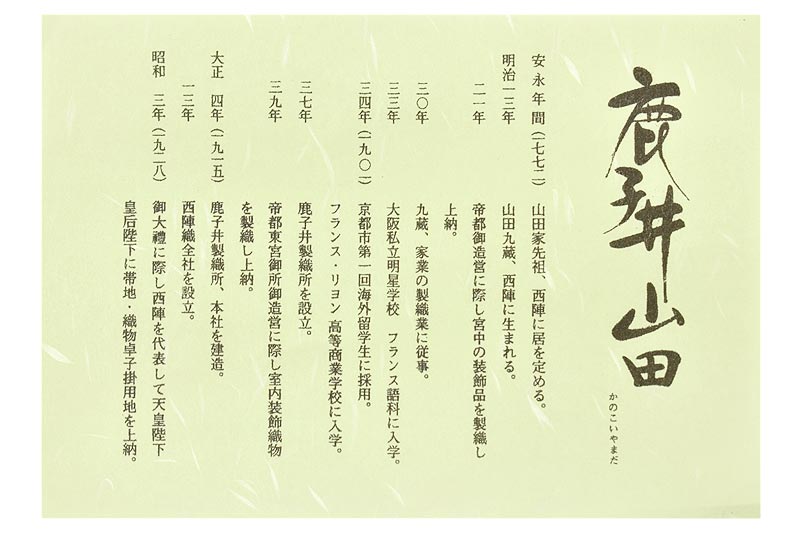 鹿子井山田
かのこいやまだ
安永年間(一七七二) 山田家先祖、西陣に居を定める。
明治一三年 山田九蔵、西陣に生まれる。
二一年 帝都御造営に際し宮中の装飾品を製織し
上納。
三〇年 九蔵、家業の製織業に従事。
三三年 大阪私立明星学校 フランス語科に入学。
三四年(一九〇一) 京都市第一回海外留学生に採用。
フランス・リヨン 高等商業学校に入学。
三七年 鹿子井製織所を設立。
三九年 帝都東宮御所御造営に際し室内装飾織物
を製織し上納。
大正 四年(一九一五) 鹿子井製織所、本社を建造。
一三年 西陣織全社を設立。
昭和 三年(一九二八) 御大禮に際し西陣を代表して天皇陛下
皇后陛下に帯地・織物卓子掛用地を上納。